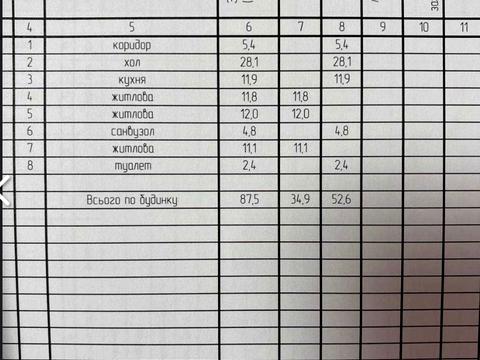 4 5 6 7 8 9 10 11
1 коридор 5,4 5,4
2 хол 28,1 28,1
3 кухня 11,9 11,9
4 житлова 11,8 11,8
5 житлова 12,0 12,0
6 санвузол 4,8 4,8
7 житлова 11,1 11,1
8 туалет 2,4 2,4
Всього по будинку 87,5 34,9 52,6